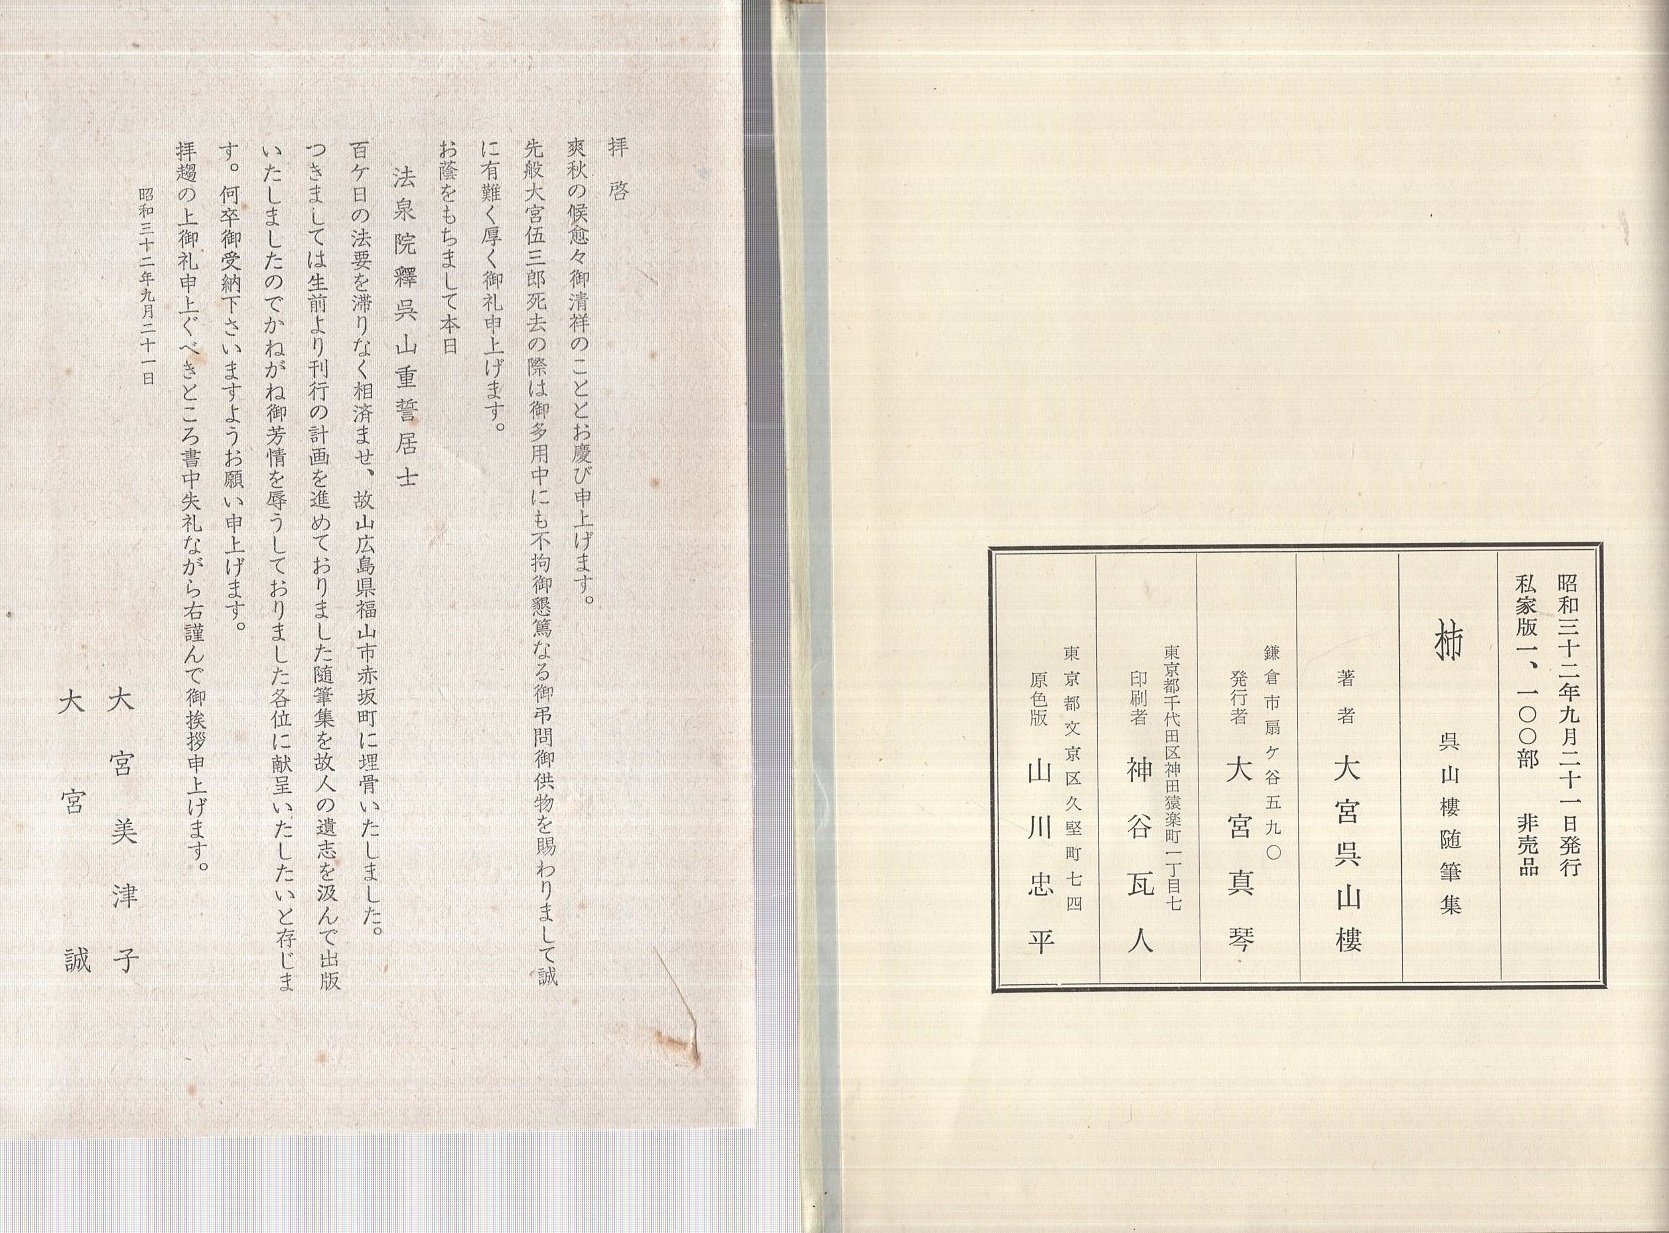 昭和三十二年九月二十一日発行
私家版一、一〇〇部 非売品
柿 呉山樓随筆集
著者 大宮呉山樓
鎌倉市扇ケ谷五九〇
発行者 大宮真琴
東京都千代田区神田猿楽町一丁目七
印刷者 神谷瓦人
東京都文京区久堅町七四
原色版 山川忠平
拝啓
爽秋の候愈々御清祥のこととお慶び申上げます。
先般大宮伍三郎死去の際は御多用中にも不拘御懇篤なる御弔問御供物を賜わりまして誠
に有難く厚く御礼申上げます。
お蔭をもちまして本日
法泉院釋呉山重誓居士
百ケ日の法要を滞りなく相済ませ、故山広島県福山市赤坂町に埋骨いたしました。
つきましては生前より刊行の計画を進めておりました随筆集を故人の遺志を汲んで出版
いたしましたのでかねがね御芳情を辱うしておりました各位に献呈いたしたいと存じま
す。何卒御受納下さいますようお願い申上げます。
拝趨の上御礼申上ぐべきところ書中失礼ながら右謹んで御挨拶申上げます。
昭和三十二年九月二十一日
大宮美津子
大宮誠